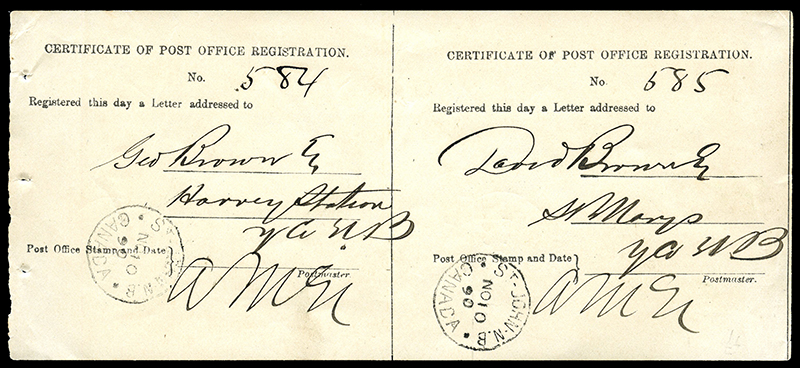 CERTIFICATE OF POST OFFICE REGISTRATION.
No. 584
Registered this day a Letter addressed to
Geo Brown E
Harvey Station
y Co N B
Post Office Stamp and Date}
Postmaster.
ST-JOHN-N.B
CANADA
NO 10
90
CERTIFICATE OF POST OFFICE REGISTRATION.
No 585
Registered this day a Letter addressed to
David Brown E
St Marys
y Co N B
Post Office Stamp and Date}
Postmaster.
ST-JOHN-N.B
CANADA
NO 10
90